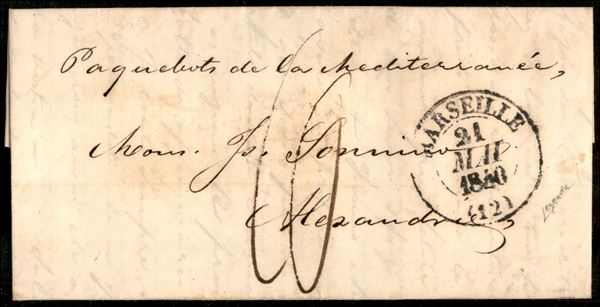 Paquebots de la Mediterranée,
MARSEILLE
21
MAI
1840
(12)
Mons. Js. Sonnino
Alexandrie